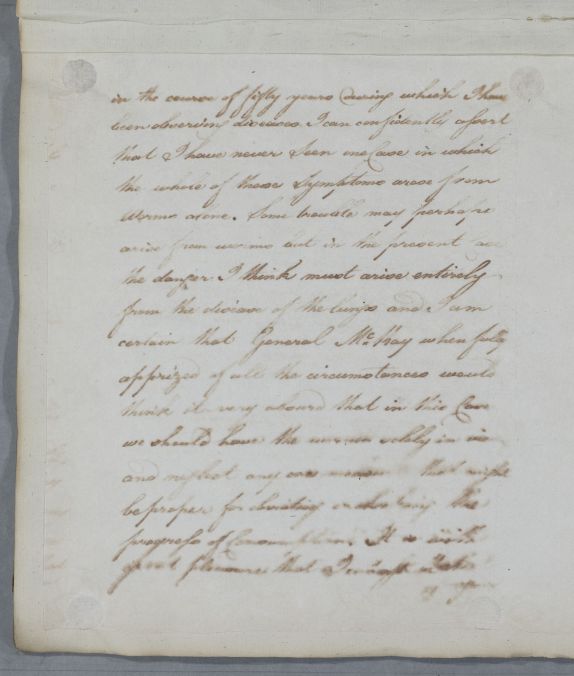 in the course of fifty years during which I have
been observing diseases I can confidently assert
that I have never seen one Case in which
the whole of those Symptoms arose from
worms alone. Some trouble may perhaps
arise from worms but in the present
the danger I think must arise entirely
from the disease of the lungs and I am
certain that General McKay when fully
apprized of all the circumstances would
think it very absurd that in this Case
we should have the worms solely in
and neglect any one that might
be proper for obviating the
progress of Consumption. It is with
great pleasure that I